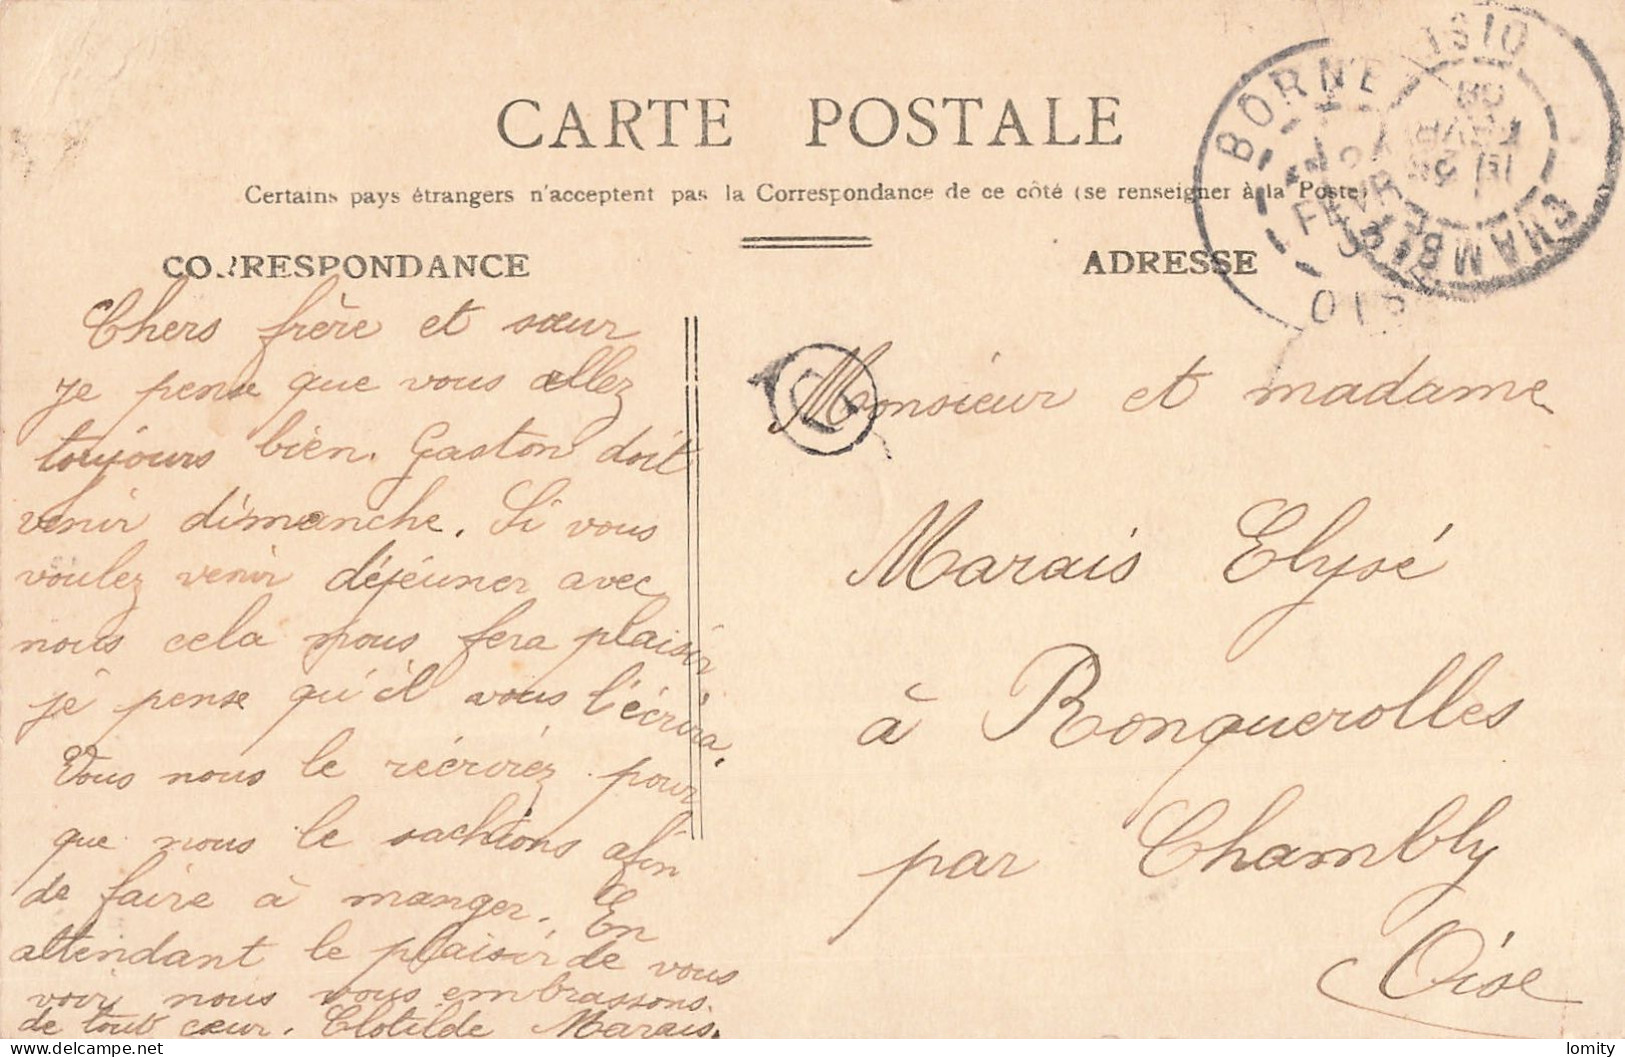 CARTE POSTALE
Certains pays étrangers n'acceptent pas la Correspondance de ce côté (se renseigner à la Poste)
CORRESPONDANCE
Chers frère et sœur
je pense que vous allez
toujours bien. Gaston doit
venir dimanche. Si vous
voulez venir déjéuner avec
nous cela nous fera plaisir
je pense qu'il vous l'écrira.
Vous nous le récrirez pour
que nous le sachions afin
de faire à manger. En
attendant le plaisir de vous
voir nous vous embrassons
de tout cœur. Clotilde Marais.
ADRESSE
Monsieur et madame
Marais Elysé
à Ronquerolles
par Chambly
Oise
BORNEL
FEVR
OISE
CHAMBLY
OISE
FEVR
08
delcampe.net
lomity